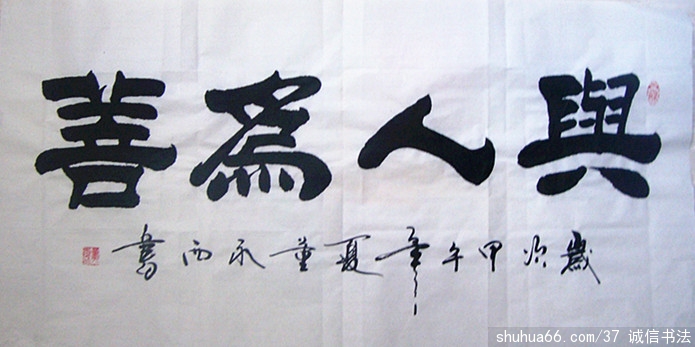 與人為善
歲次甲午年夏董承西書
shuhua66.com/37 诚信书法